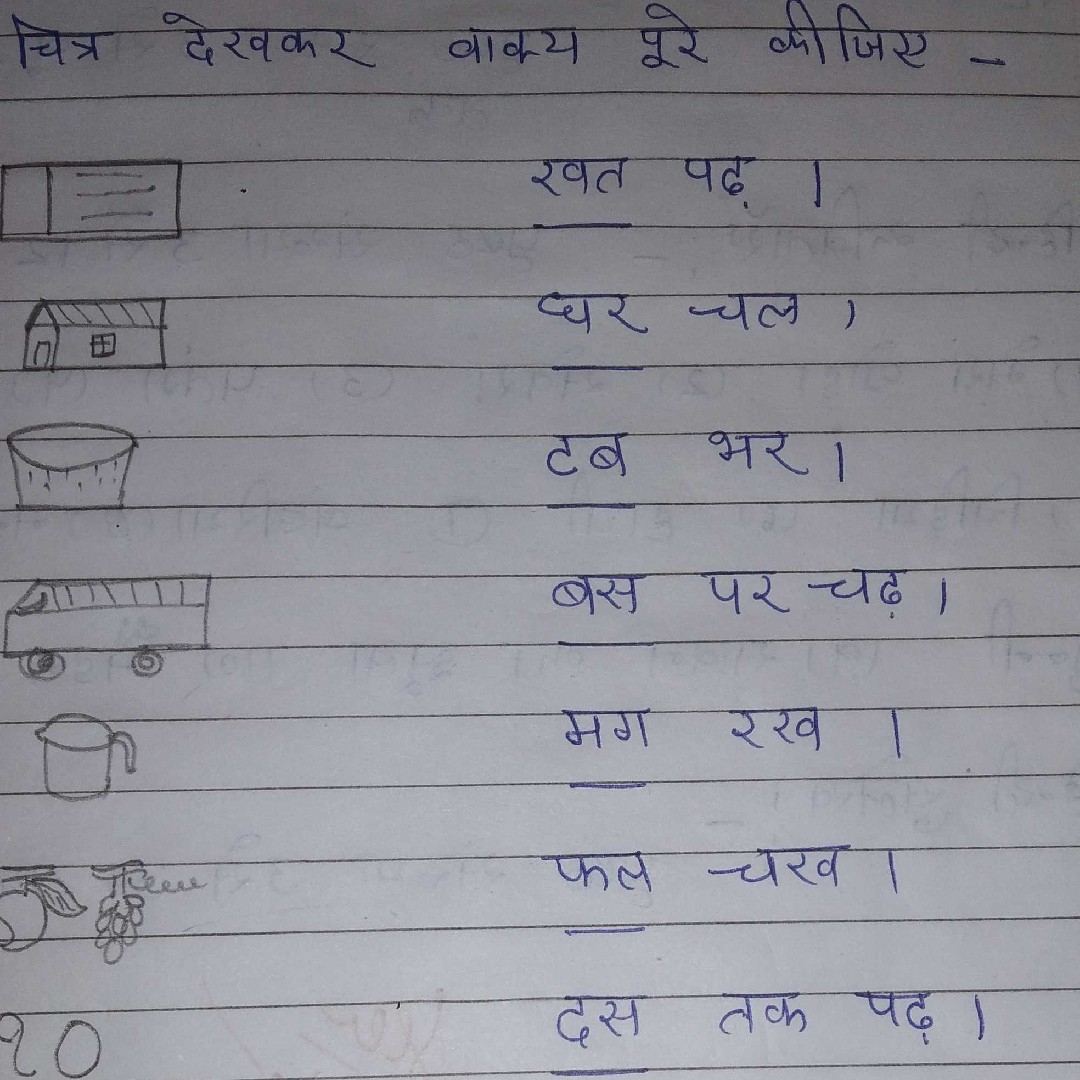 चित्र देखकर वाक्य पूरे कीजिए -
खत पढ़ ।
घर चल ।
टब भर ।
बस पर चढ़ ।
मग रख ।
फल चख ।
१० दस तक पढ़ ।